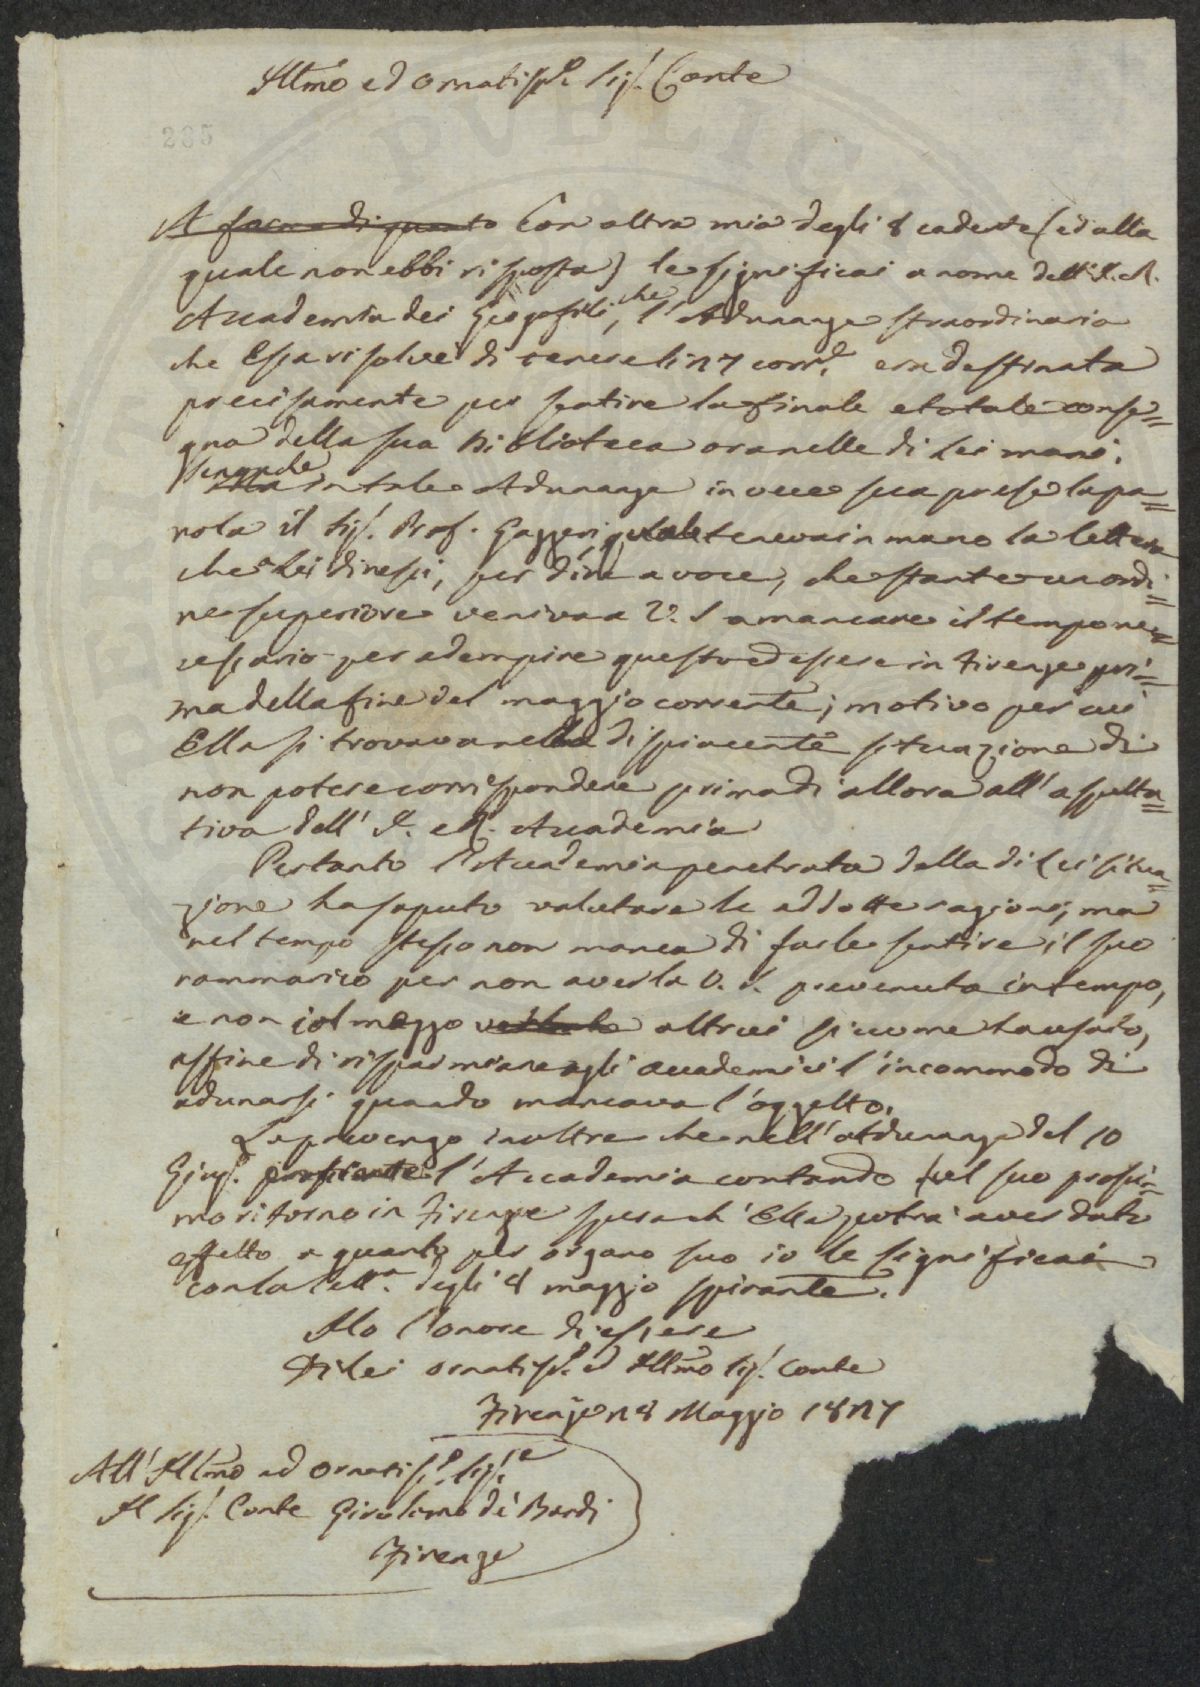 Illmo ed Ornatiss.o Sig.r Conte
285
A facendi quanto Con altra mia degli 8 cadente (ed alla
quale non ebbi risposta) le significai a nome dell'I. e R.
Accademia dei Georgofili, che l'Adunanza straordinaria
che Essa risolvè di tenere li 27 corr.e era destinata
precisamente per sentire la finale e totale conse=
gna della sua Biblioteca ora nelle di Lei mani.
Senonche
in tale Adunanza in vece sua prese la pa=
rola il Sig.r Prof. Gazzeri quale teneva in mano la lettera
che Lei diresse, per dire a voce, che stante un ordi=
ne superiore veniva a V. S. a mancare il tempo ne=
cessario per adempire questo ed essere in Firenze pri=
ma della fine del maggio corrente; motivo per cui
Ella si trovava nella dispiacente situazione di
non potere corrispondere prima di allora all'aspetta=
tiva dell'I. e R. Accademia
Pertanto l'Accademia penetrata della di Lei situa=
zione ha saputo valutare le addotte ragioni, ma
nel tempo stesso non manca di farle sentire il suo
rammarico per non averla V. S. prevenuta in tempo,
e non col mezzo altrui siccome ha usato,
affine di risparmiare agli accademici l'incommodo di
adunarsi quando mancava l'oggetto.
La prevengo inoltre che nell'Adunanza del 10
Giug.o l'Accademia contando sul suo prossi=
mo ritorno in Firenze spera ch'Ella potrà aver dato
effetto a quanto per organo suo io le significai
con la lett.a degli 8 maggio spirante.
Ho l'onore di essere
Di Lei Ornatiss.o ed Illmo Sig.r Conte
Firenze 28 Maggio 1827
All'Illmo ed Ornatiss.o Sig.re
Il Sig.r Conte Girolamo de' Bardi
Firenze